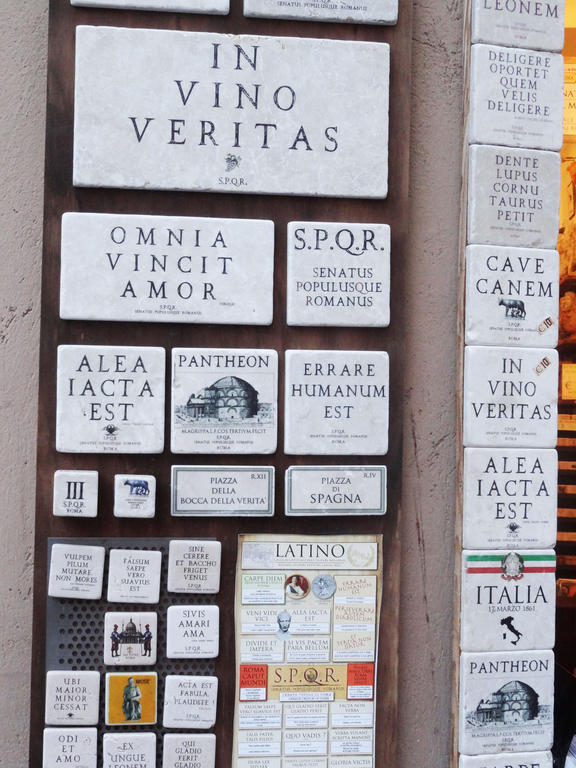 SENATUS POPULUSQUE ROMANUS
IN
VINO
VERITAS
S.P.Q.R.
OMNIA
VINCIT
AMOR
S.P.Q.R.
SENATUS POPULUSQUE ROMANUS
S.P.Q.R.
SENATUS
POPULUSQUE
ROMANUS
ALEA
IACTA
EST
S.P.Q.R.
SENATUS POPULUSQUE ROMANUS
ROMA
PANTHEON
M·AGRIPPA·L·F·COS·TERTIVM·FECIT
S.P.Q.R.
SENATUS POPULUSQUE ROMANUS
ROMA
ERRARE
HUMANUM
EST
S.P.Q.R.
SENATUS POPULUSQUE ROMANUS
ROMA
III
S.P.Q.R.
ROMA
R.XII
PIAZZA
DELLA
BOCCA DELLA VERITA'
R.IV
PIAZZA
DI
SPAGNA
VULPEM
PILUM
MUTARE,
NON MORES
FALSUM
SAEPE
VERO
SUAVIUS
EST
SINE
CERERE
ET BACCHO
FRIGET
VENUS
SIVIS
AMARI
AMA
UBI
MAIOR
MINOR
CESSAT
ACTA EST
FABULA,
PLAUDITE!
ODI
ET
AMO
EX
UNGUE
LEONEM
QUI
GLADIO
FERIT
GLADIO
LATINO
CARPE DIEM
ERRARE
HUMANUM
EST
VENI VIDI
VICI
ALEA IACTA
EST
PERSEVERARE
DIABOLICUM
DIVIDE ET
IMPERA
SI VIS PACEM
PARA BELLUM
ROMA
CAPUT
MUNDI
S.P.Q.R.
SENATUS POPULUSQUE ROMANUS
FALSUM SAEPE
VERO SUAVIUS EST
QUI GLADIO FERIT
GLADIO PERIT
FACTA NON
VERBA
TALIS PATER
TALIS FILIUS
QUO VADIS ?
VERBA VOLANT
SCRIPTA MANENT
DURA LEX
GLORIA VICTIS
LEONEM
DELIGERE
OPORTET
QUEM
VELIS
DELIGERE
DENTE
LUPUS
CORNU
TAURUS
PETIT
CAVE
CANEM
S.P.Q.R.
ROMA
€10
IN
VINO
VERITAS
S.P.Q.R.
ROMA
€10
ALEA
IACTA
EST
S.P.Q.R.
SENATUS POPULUSQUE ROMANUS
ROMA
ITALIA
17 MARZO 1861
PANTHEON
M·AGRIPPA·L·F·COS·TERTIVM·FECIT
S.P.Q.R.
SENATUS POPULUSQUE ROMANUS
ROMA
CARPE